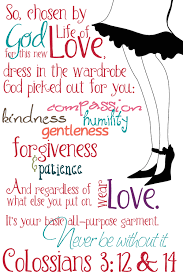 So, chosen by
God for this new Life of
Love,
dress in the wardrobe
God picked out for you:
compassion
kindness humility
gentleness
forgiveness
& patience
And regardless of
what else you put on, wear Love.
It's your basic all-purpose garment.
Never be without it.
Colossians 3:12 & 14